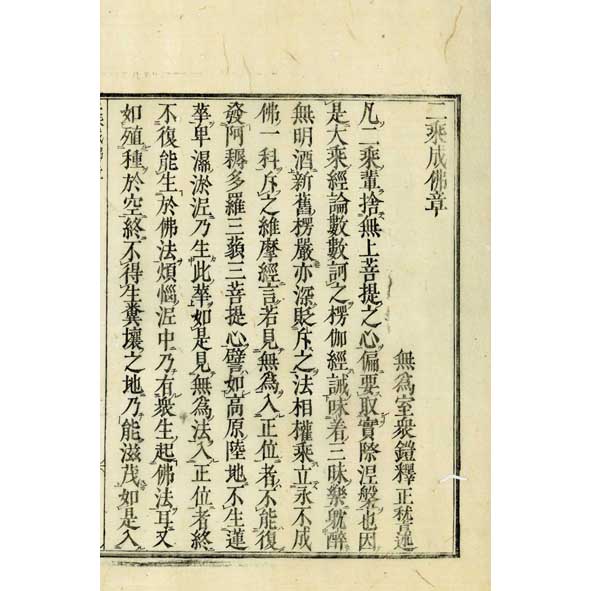 二乘成佛章
無爲室衆鎧釋正
凡二乘輩捨無上菩提之心偏要取實際涅槃也因
是大乘經論數數訶之楞伽經誡味着三昧樂躭醉
無明酒新舊楞嚴亦深貶斥之法相權乘立永不成
佛一科斥之維摩經言若見無爲入正位者不能復
發阿耨多羅三藐三菩提心譬如高原陸地不生蓮
華卑濕淤泥乃生此華如是見無爲法入正位者終
不復能生於佛法煩惱泥中乃有衆生起佛法耳又
如殖種於空終不得生糞壤之地乃能滋茂如是入